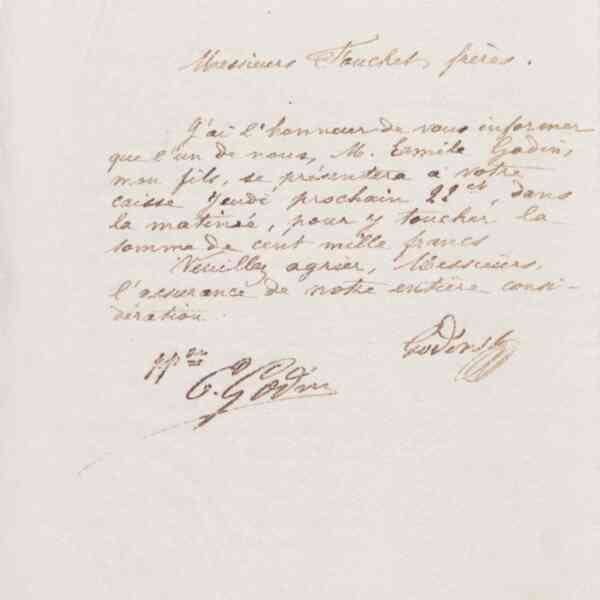 Messieurs Touchet, frères.
J'ai l'honneur de vous informer
que l'un de nous, M. Emile Godin,
mon fils, se présentera à votre
caisse Jeudi prochain 22 ct, dans
la matinée, pour y toucher la
somme de cent mille francs
Veuillez agrier, Messieurs,
l'assurance de notre entière consi-
dération.
E. Godin